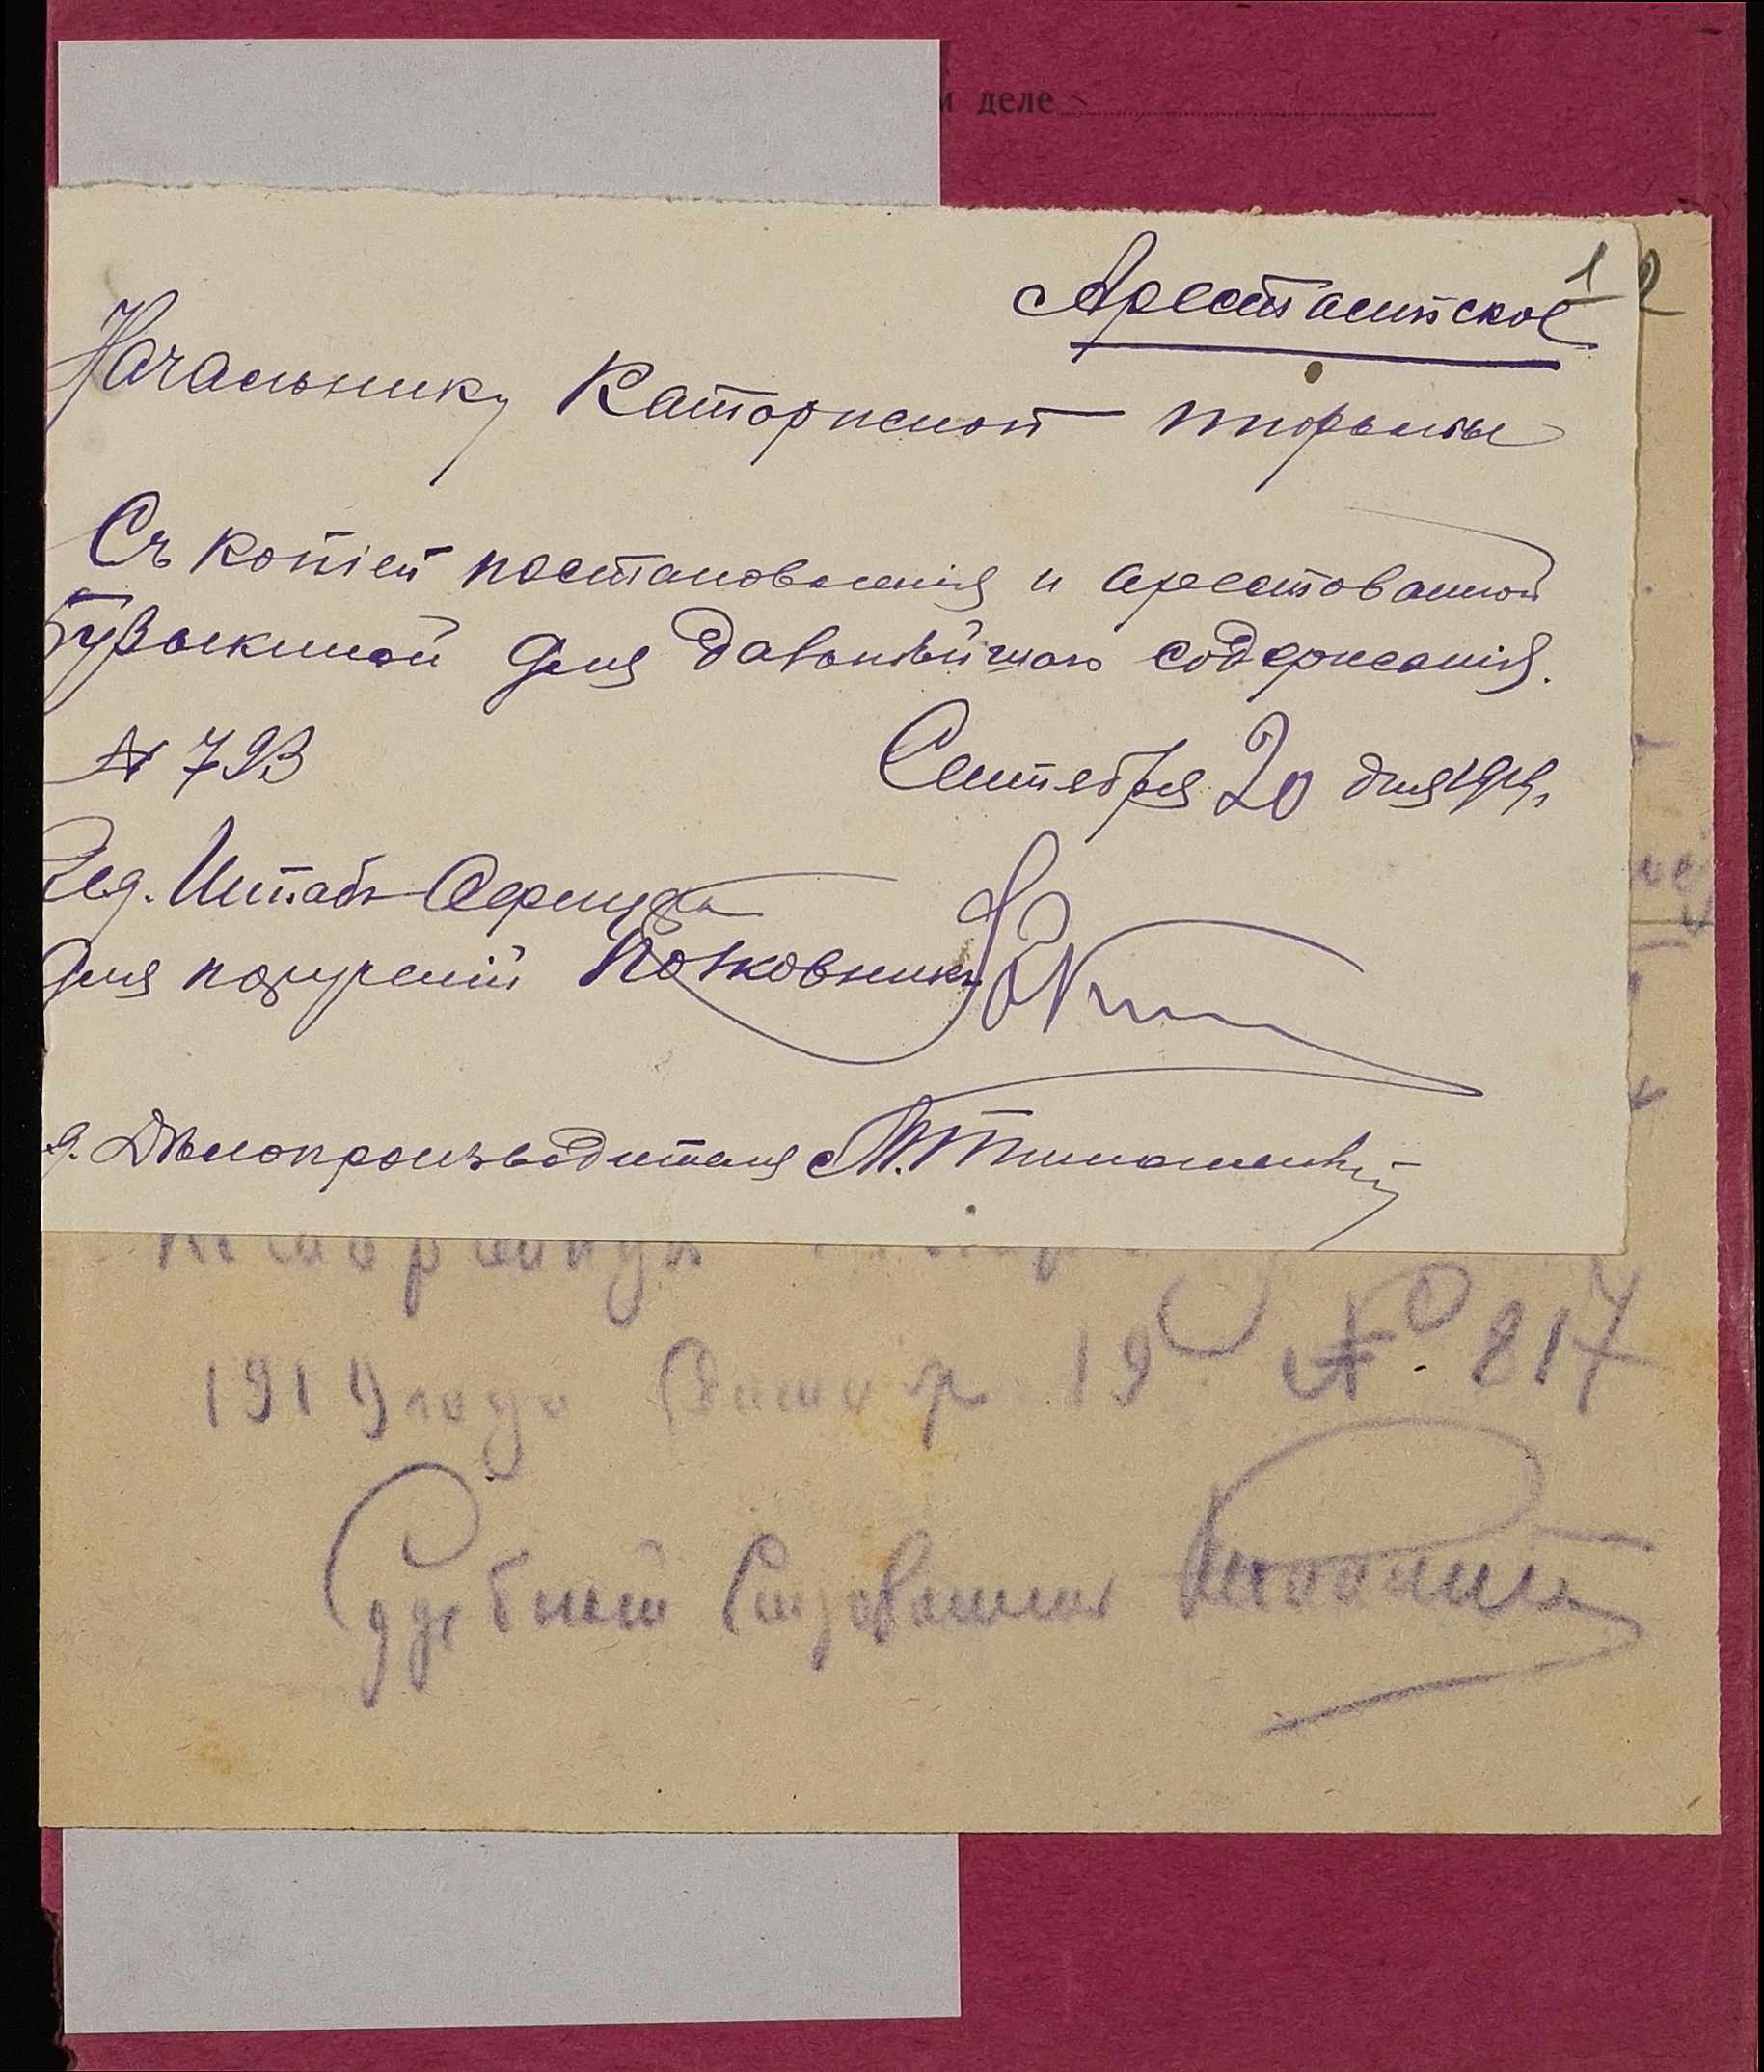 и деле
Арестантское
1 2
Начальнику Каторжной тюрьмы
Съ копіей постановленія и арестованной
Бузыкиной для дальнѣйшаго содержанія.
№ 793
Сентября 20 дня 1919 г.
Штабъ-Офицера
для порученій Полковникъ
д. Дѣлопроизводителя М. Тимошевскій
1919 года 19 № 817
Судебный Слѣдователь